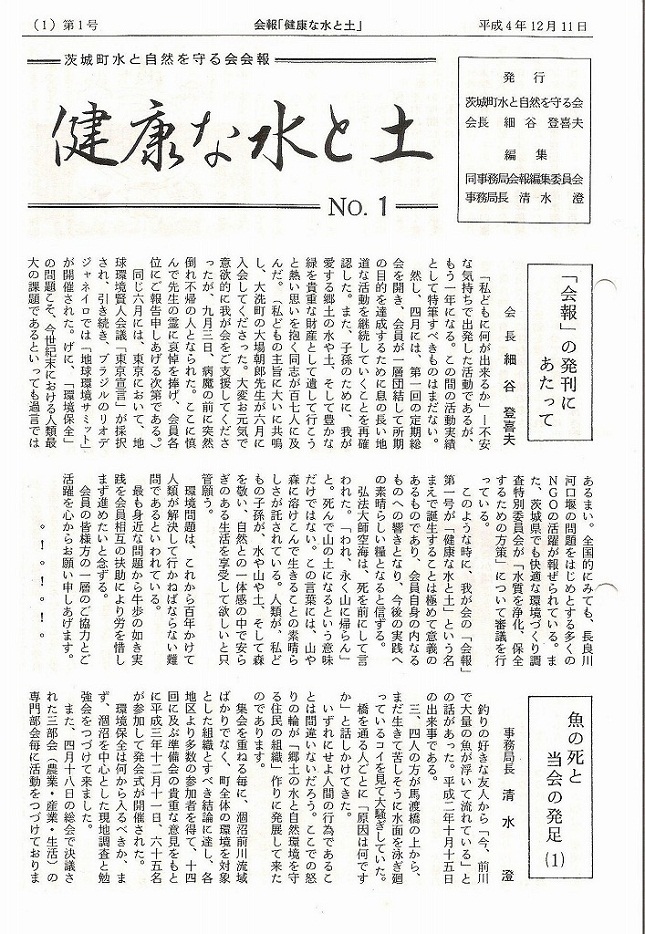 （1）第1号
会報「健康な水と土」
平成4年12月11日
茨城町水と自然を守る会会報
健康な水と土
No. 1
発　行
茨城町水と自然を守る会
会長　細　谷　登喜夫
編　集
同事務局会報編集委員会
事務局長　清　水　　澄
「会報」の発刊に
あたって
会　長　細　谷　登喜夫
「私どもに何が出来るか」―不安
な気持ちで出発した活動であるが、
もう一年になる。この間の活動実績
として特筆すべきものはまだない。
然し、四月には、第一回の定期総
会を開き、会員が一層団結して所期
の目的を達成するために息の長い地
道な活動を継続していくことを再確
認した。また、子孫のために、我が
愛する郷土の水や土、そして豊かな
緑を貴重な財産として遺して行こう
と熱い思いを抱く同志が百七人に及
んだ。（私どもの主旨に大いに共鳴
し、大洗町の大場朝郎先生が六月に
入会してくださった。大変お元気で
意欲的に我が会をご支援してくださ
ったが、九月三日、病魔の前に突然
倒れ不帰の人となられた。ここに慎
んで先生の霊に哀悼を捧げ、会員各
位にご報告申しあげる次第である。）
同じ六月には、東京において、地
球環境賢人会議「東京宣言」が採択
され、引き続き、ブラジルのリオデ
ジャネイロでは「地球環境サミット」
が開催された。げに、「環境保全」
の問題こそ、今世紀末における人類最
大の課題であるといっても過言では
あるまい。全国的にみても、長良川
河口堰の問題をはじめとする多くの
NGOの活躍が報ぜられている。ま
た、茨城県でも快適な環境づくり調
査特別委員会が「水質を浄化、保全
するための方策」について審議を行
っている。
このような時に、我が会の「会報」
第一号が「健康な水と土」という名
まえで誕生することは極めて意義の
あるものであり、会員自身の内なる
ものへの響きとなり、今後の実践へ
の素晴らしい糧となると信ずる。
弘法大師空海は、死を前にして言
われた。「われ、永く山に帰らん」
と。死んで山の土になるという意味
だけではない。この言葉には、山や
森に溶けこんで生きることの素晴ら
しさが託されている。人類が、私ど
もの子孫が、水や山や土、そして森
を敬い、自然との一体感の中で安ら
ぎのある生活を享受して欲しいと只
管願う。
環境問題は、これから百年かけて
人類が解決して行かねばならない難
問であるといわれている。
最も身近な問題から牛歩の如き実
践を会員相互の扶助により労を惜し
まず進めたいと念ずる。
会員の皆様方の一層のご協力とご
活躍を心からお願い申しあげます。
。！。！。！。
魚の死と
当会の発足（1）
事務局長　清　水　　澄
釣りの好きな友人から「今、前川
で大量の魚が浮いて流れている」と
の話があった。平成二年十月十五日
の出来事である。
三、四人の方が馬渡橋の上から、
まだ生きて苦しそうに水面を泳ぎ廻
っているコイを見て大騒ぎしていた。
橋を通る人ごとに「原因は何です
か」と話しかけてきた。
いずれにせよ人間の行為であるこ
とは間違いないだろう。ここでの怒
りの輪が「郷土の水と自然環境を守
る住民の組織」作りに発展して来た
のであります。
集会を重ねる毎に、涸沼前川流域
ばかりでなく、町全体の環境を対象
とした組織とすべき結論に達し、各
地区より多数の参加者を得て、十四
回に及ぶ準備会の貴重な意見をもと
に平成三年十二月十一日、六十五名
が参加して発会式が開催された。
環境保全は何から入るべきか、ま
ず、涸沼を中心とした現地調査と勉
強会をつづけて来ました。
また、四月十八日の総会で決議さ
れた三部会（農業・産業・生活）の
専門部会毎に活動をつづけておりま